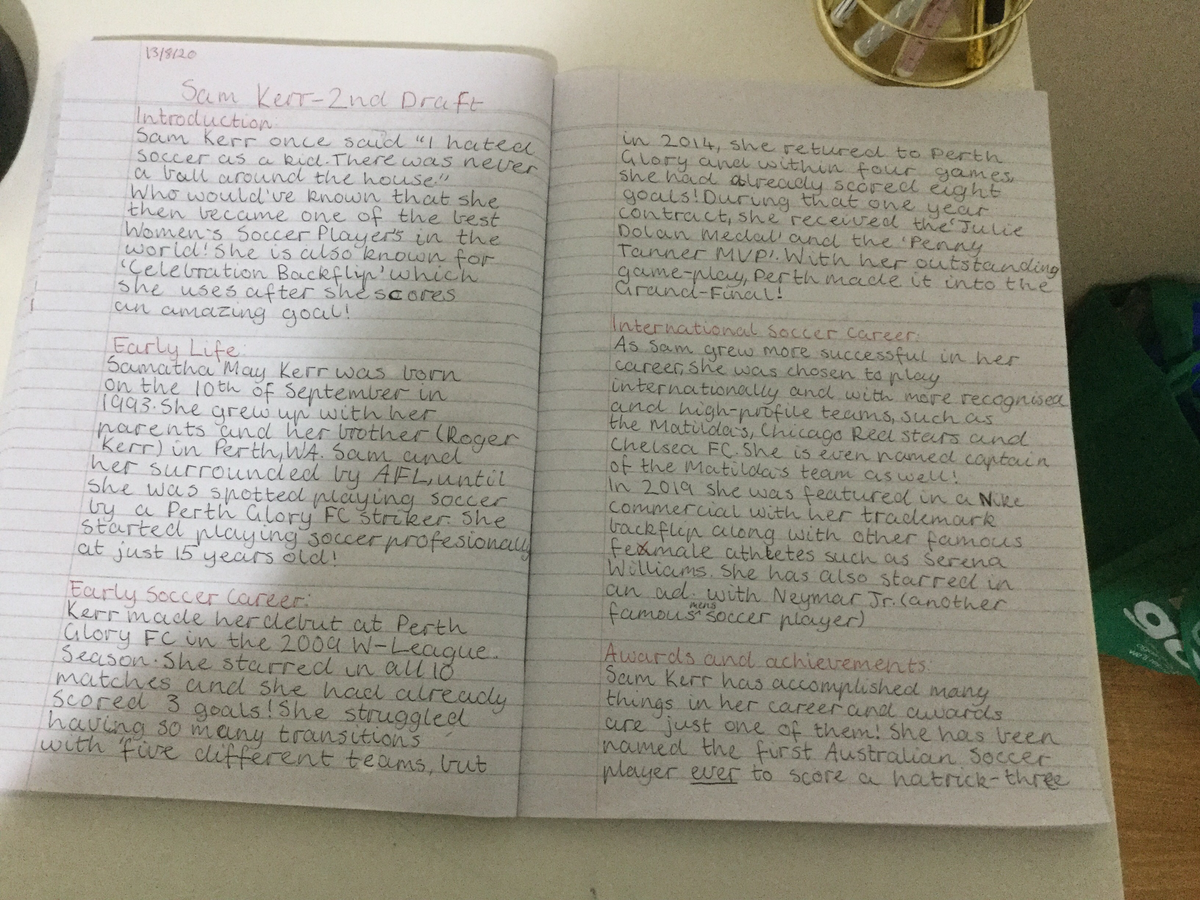 13/8/20
Sam Kerr-2nd Draft
Introduction:
Sam Kerr once said "I hated
soccer as a kid. There was never
a ball around the house."
Who would've known that she
then became one of the best
Women's Soccer Players in the
world! She is also known for
'Celebration Backflip' which
she uses after she scores
an amazing goal!
Early Life:
Samatha May Kerr was born
on the 10th of September in
1993. She grew up with her
parents and her brother (Roger
Kerr) in Perth, WA. Sam and
her surrounded by AFL, until
she was spotted playing soccer
by a Perth Glory FC striker. She
started playing soccer profesionally
at just 15 years old!
Early Soccer Career:
Kerr made her debut at Perth
Glory FC in the 2009 W-League
Season. She starred in all 10
matches and she had already
scored 3 goals! She struggled
having so many transitions
with five different teams, but
in 2014, she retured to Perth
Glory and within four games,
she had already scored eight
goals! During that one year
contract, she received the 'Julie
Dolan Medal' and the 'Penny
Tanner MVP'. With her outstanding
game-play, Perth made it into the
Grand-Final!
International Soccer Career:
As Sam grew more successful in her
career, she was chosen to play
internationally and with more recognised
and high-profile teams, such as
the Matilda's, Chicago Red stars and
Chelsea FC. She is even named captain
of the Matilda's team as well!
In 2019 she was featured in a Nike
commercial with her trademark
backflip along with other famous
female athletes such as Serena
Williams. She has also starred in
an ad. with Neymar Jr. (another
famous mens soccer player)
Awards and achievements:
Sam Kerr has accomplished many
things in her career and awards
are just one of them! She has been
named the first Australian Soccer
player ever to score a hatrick-three